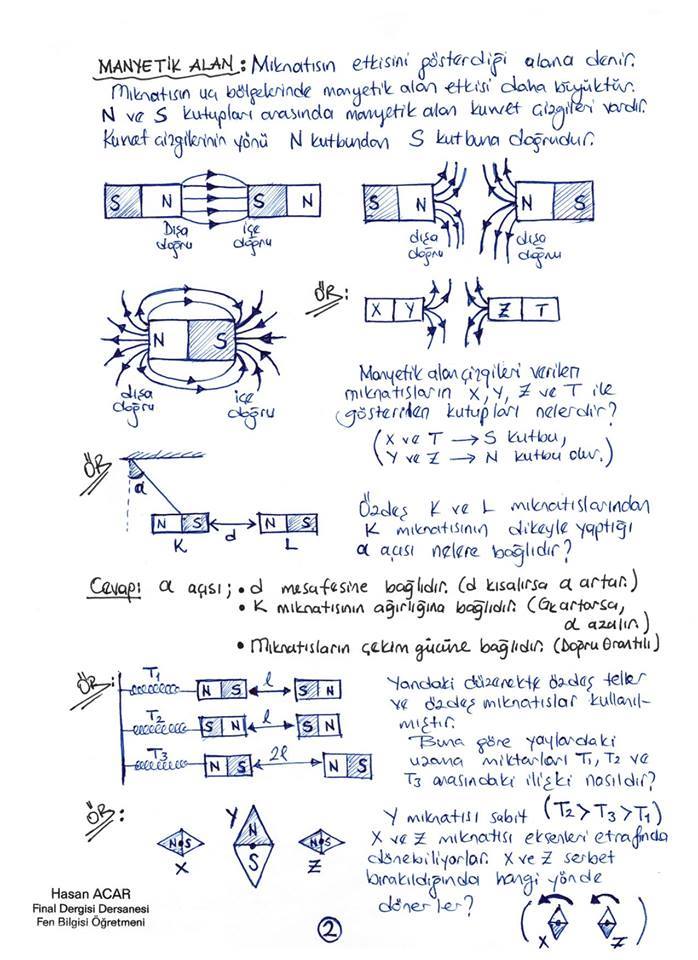 MANYETİK ALAN: Mıknatısın etkisini gösterdiği alana denir.
Mıknatısın uç bölgelerinde manyetik alan etkisi daha büyüktür.
N ve S kutupları arasında manyetik alan kuvvet çizgileri vardır.
Kuvvet çizgilerinin yönü N kutbundan S kutbuna doğrudur.
S N S N
Dışa doğru
içe doğru
S N N S
dışa doğru
dışa doğru
N S
dışa doğru
içe doğru
ÖR:
X Y Z T
Manyetik alan çizgileri verilen
mıknatısların X, Y, Z ve T ile
gösterilen kutupları nelerdir?
(X ve T → S kutbu,
Y ve Z → N kutbu olur.)
ÖR
α
N S N S
K d L
Özdeş K ve L mıknatıslarından
K mıknatısının dikeyle yaptığı
α açısı nelere bağlıdır?
Cevap: α açısı; • d mesafesine bağlıdır. (d kısalırsa α artar.)
• K mıknatısının ağırlığına bağlıdır. (Gk artarsa,
α azalır.)
• Mıknatısların çekim gücüne bağlıdır. (Doğru Orantılı)
ÖR:
T1 N S l S N
T2 S N l S N
T3 N S 2l N S
Yandaki düzenekte özdeş teller
ve özdeş mıknatıslar kullanıl-
mıştır.
Buna göre yaylardaki
uzama miktarları T1, T2 ve
T3 arasındaki ilişki nasıldır?
(T2 > T3 > T1)
ÖR:
N S
X
Y
N
S
N S
Z
Y mıknatısı sabit
X ve Z mıknatısı eksenleri etrafında
dönebiliyorlar. X ve Z serbest
bırakıldığında hangi yönde
dönerler?
X Z
Hasan ACAR
Final Dergisi Dersanesi
Fen Bilgisi Öğretmeni
2